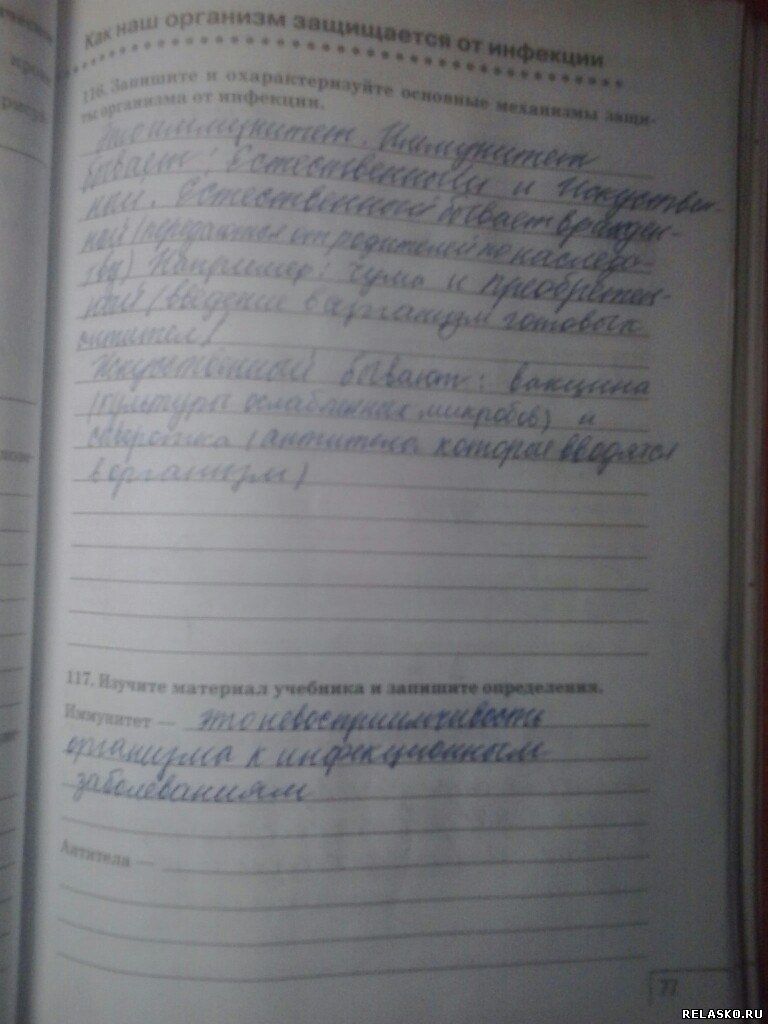 Как наш организм защищается от инфекции
116. Запишите и охарактеризуйте основные механизмы защи-
ты организма от инфекции.
Это иммунитет. Иммунитет
бывает: Естественный и Искуствен-
ный. Естественный бывает врожден-
ной (передаются от родителей по наследс-
тву) Например: чума и преобретен-
ный (выдение в организм готовых
антител)
Искуственный бывают: вакцина
(культуры ослабленных микробов) и
сыворотка (антитела которые вводятся
в организм)
117. Изучите материал учебника и запишите определения.
Иммунитет — это невосприимчивость
организма к инфекционным
заболеваниям
Антитела —
77
RELASKO.RU